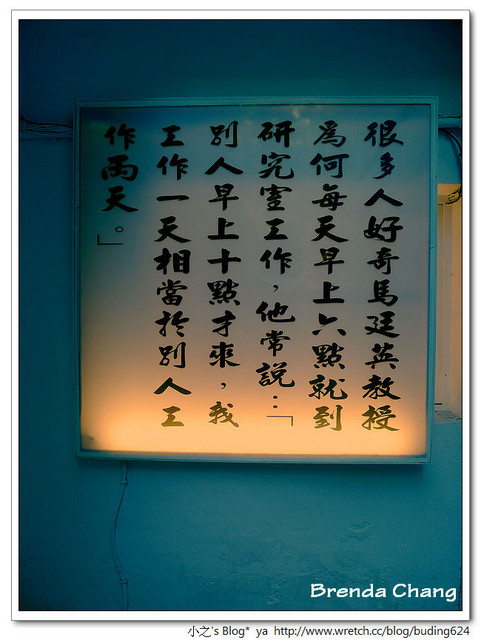 很多人好奇馬廷英教授
為何每天早上六點就到
研究室工作，他常說：「
別人早上十點才來，我
工作一天相當於別人工
作兩天。」
Brenda Chang
小之's Blog* ya http://www.wretch.cc/blog/buding624